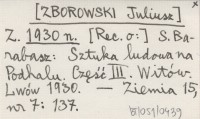 [ZBOROWSKI Juliusz]
Z. 1930 n. [Rec. o:] S. Ba-
rabasz: Sztuka ludowa na
Podhalu. Część III. Witów.
Lwów 1930. — Ziemia 15,
nr 7: 137.